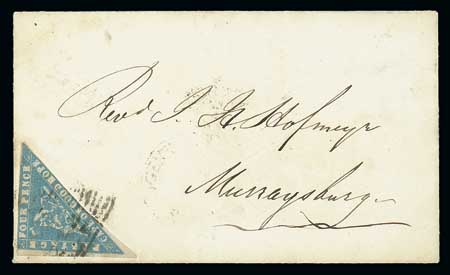 Revd J. H. Hofmeyr
Murraysburg
FOUR PENCE
POSTAGE
CAPE OF GOOD HOPE